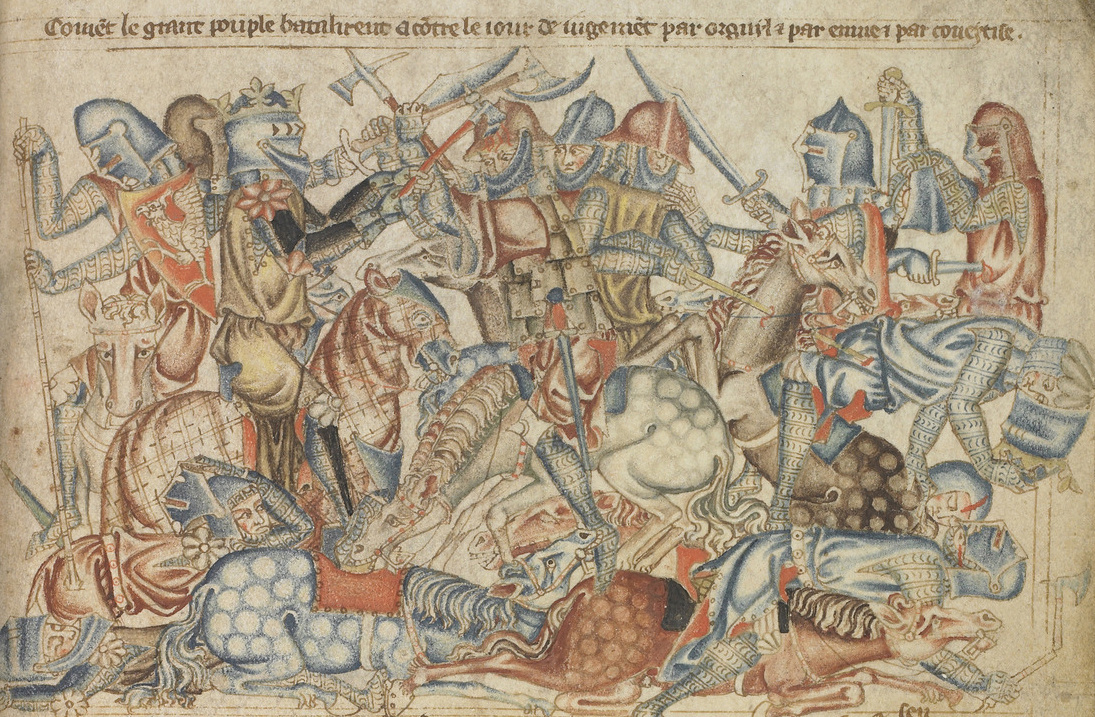 Comēt le grant poeple batailirent acōtre le iour de iugemēt par orguyl ⁊ par enuie ⁊ par coueytise .
seu